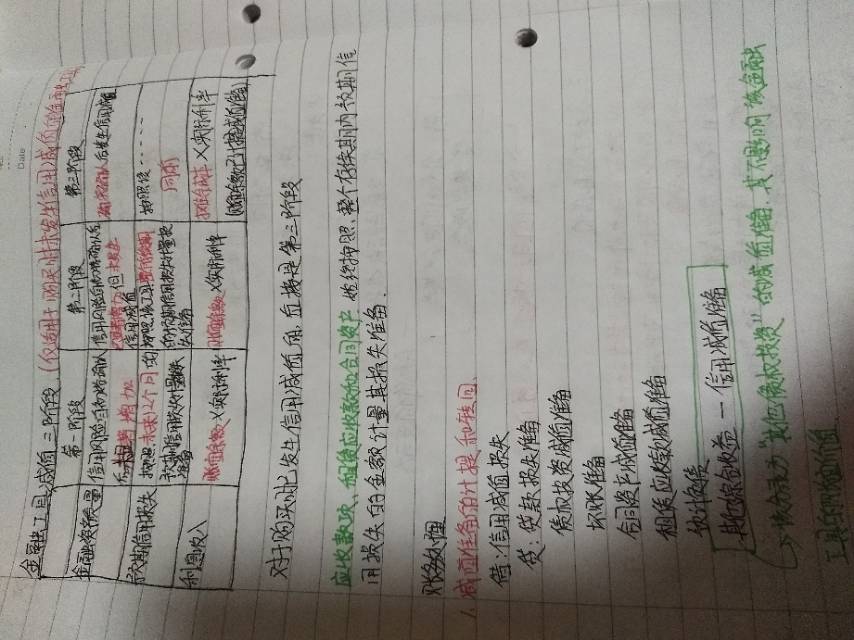 Date
金融工具减值三阶段(仅适用于购买时未发生信用减值的金融工具)
第一阶段 第二阶段 第三阶段
金融资产质量
信用风险自初始确认后未显著增加
信用风险自初始确认后已显著增加 但未发生信用减值
初始确认后发生信用减值
预期信用损失
按照未来12个月的预期信用损失计量损失准备
按照该工具整个存续期的预期信用损失计量损失准备
按照该……
同前
利息收入
账面余额×实际利率
账面余额×实际利率
摊余成本×实际利率
账面余额-已计提减值准备
对于购买时已发生信用减值的,直接是第三阶段
应收款项、租赁应收款和合同资产 始终按照整个存续期内预期信
用损失的金额计量其损失准备.
账务处理
1. 减值准备的计提和转回.
借:信用减值损失
贷:贷款损失准备
债权投资减值准备
坏账准备
合同资产减值准备
租赁应收款减值准备
预计负债
其他综合收益——信用减值准备
作为"其他债权投资"的减值准备,其不影响该金融
工具的账面价值